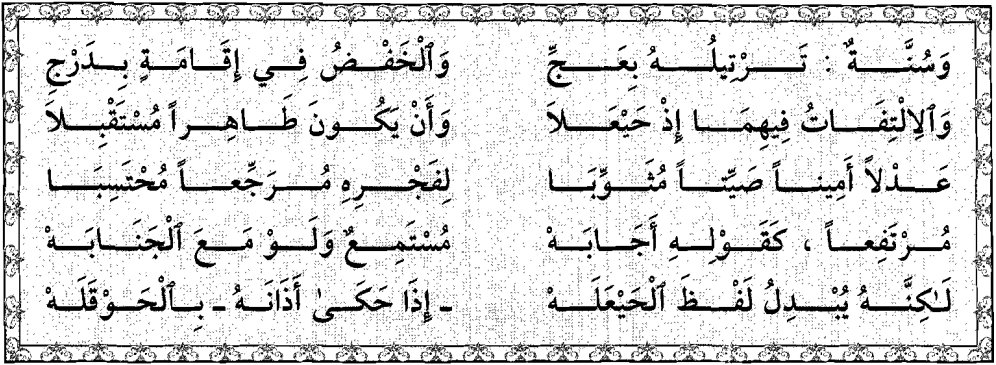 وَسُنَّةٌ : تَرْتِيلُهُ بِعَجِّ وَٱلْخَفْضُ فِي إِقَامَةٍ بِدَرْجِ
وَٱلِالْتِفَاتُ فِيهِمَا إِذْ حَيْعَلَا وَأَنْ يَكُونَ طَاهِراً مُسْتَقْبِلَا
عَدْلاً أَمِيناً صَيِّتاً مُثَوِّبَا لِفَجْرِهِ مُرَجِّعاً مُحْتَسِبَا
مُرْتَفِعاً ، كَقَوْلِهِ أَجَابَهْ مُسْتَمِعٌ وَلَوْ مَعَ ٱلْجَنَابَهْ
لَـٰكِنَّهُ يُبْدِلُ لَفْظَ ٱلْحَيْعَلَهْ ـ إِذَا حَكَىٰ أَذَانَهُ ـ بِٱلْحَوْقَلَهْ